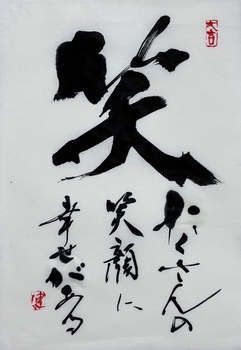 笑
たくさんの
笑顔に
幸せがある
大吉